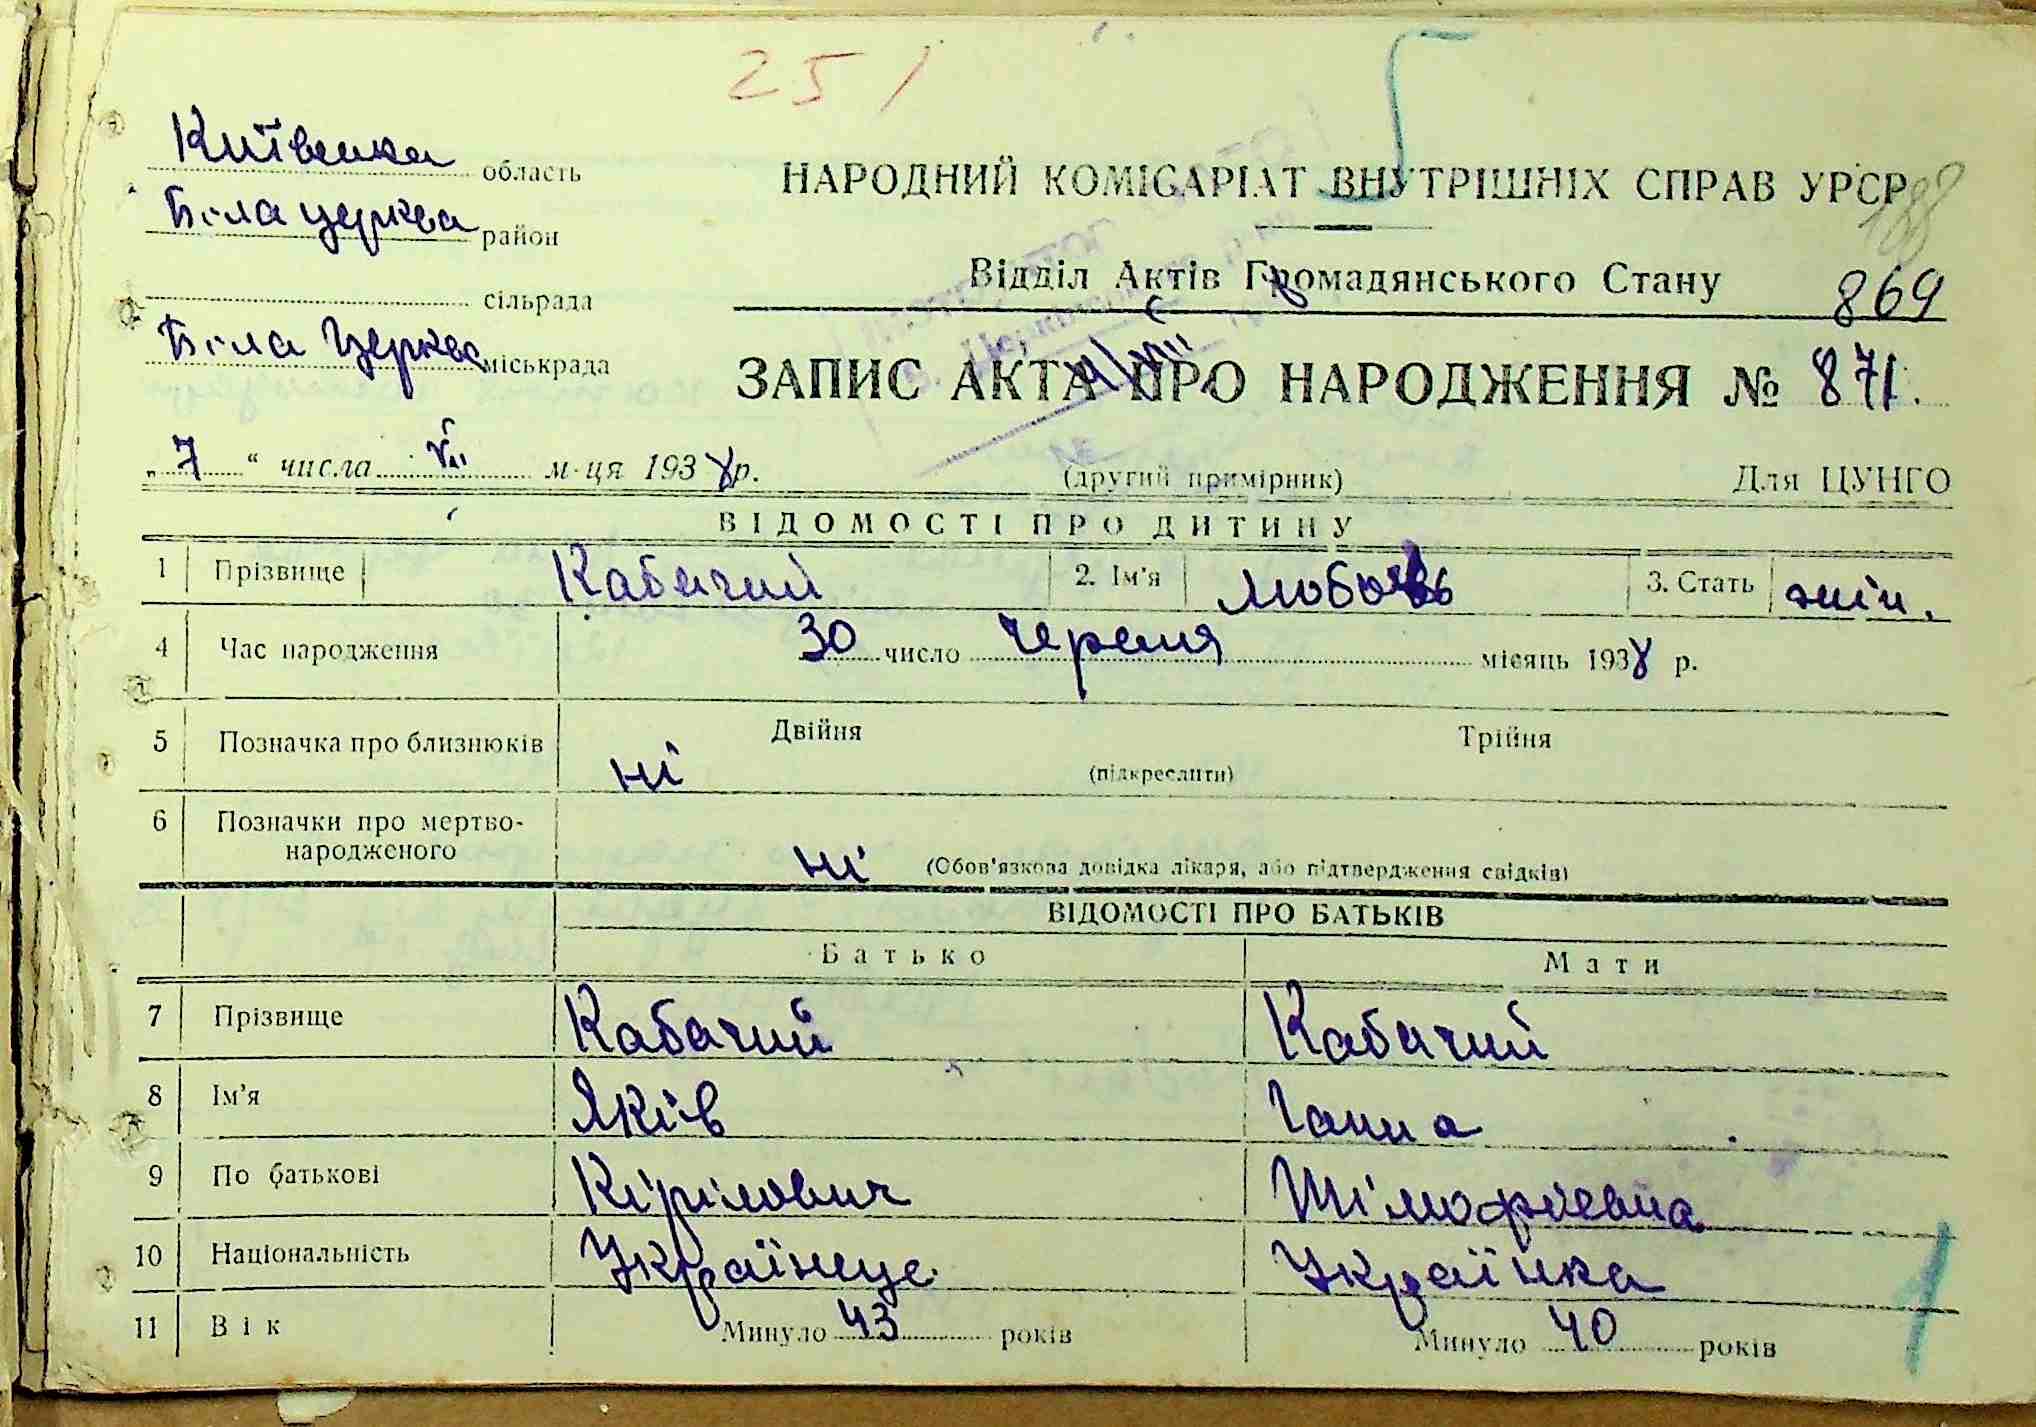 251
5
Київська область
188
Біла церква район
НАРОДНИЙ КОМІСАРІАТ ВНУТРІШНІХ СПРАВ УРСР
сільрада
Відділ Актів Громадянського Стану
869
Біла Церква міськрада
ЗАПИС АКТА ПРО НАРОДЖЕННЯ № 871.
„7“ числа VII м-ця 1938 р.
(другий примірник)
Для ЦУНГО
ВІДОМОСТІ ПРО ДИТИНУ
1 Прізвище Кабачий 2. Ім'я Любовь 3. Стать жін.
4 Час народження 30 число Червня місяць 1938 р.
5 Позначка про близнюків ні Двійня Трійня
(підкреслити)
6 Позначки про мертво-
народженого ні (Обов'язкова довідка лікаря, або підтвердження свідків)
ВІДОМОСТІ ПРО БАТЬКІВ
Батько Мати
7 Прізвище Кабачий Кабачий
8 Ім'я Яків Ганна
9 По батькові Кірілович Тімофієвна
10 Національність Українець Українка
11 Вік Минуло 43 років Минуло 40 років